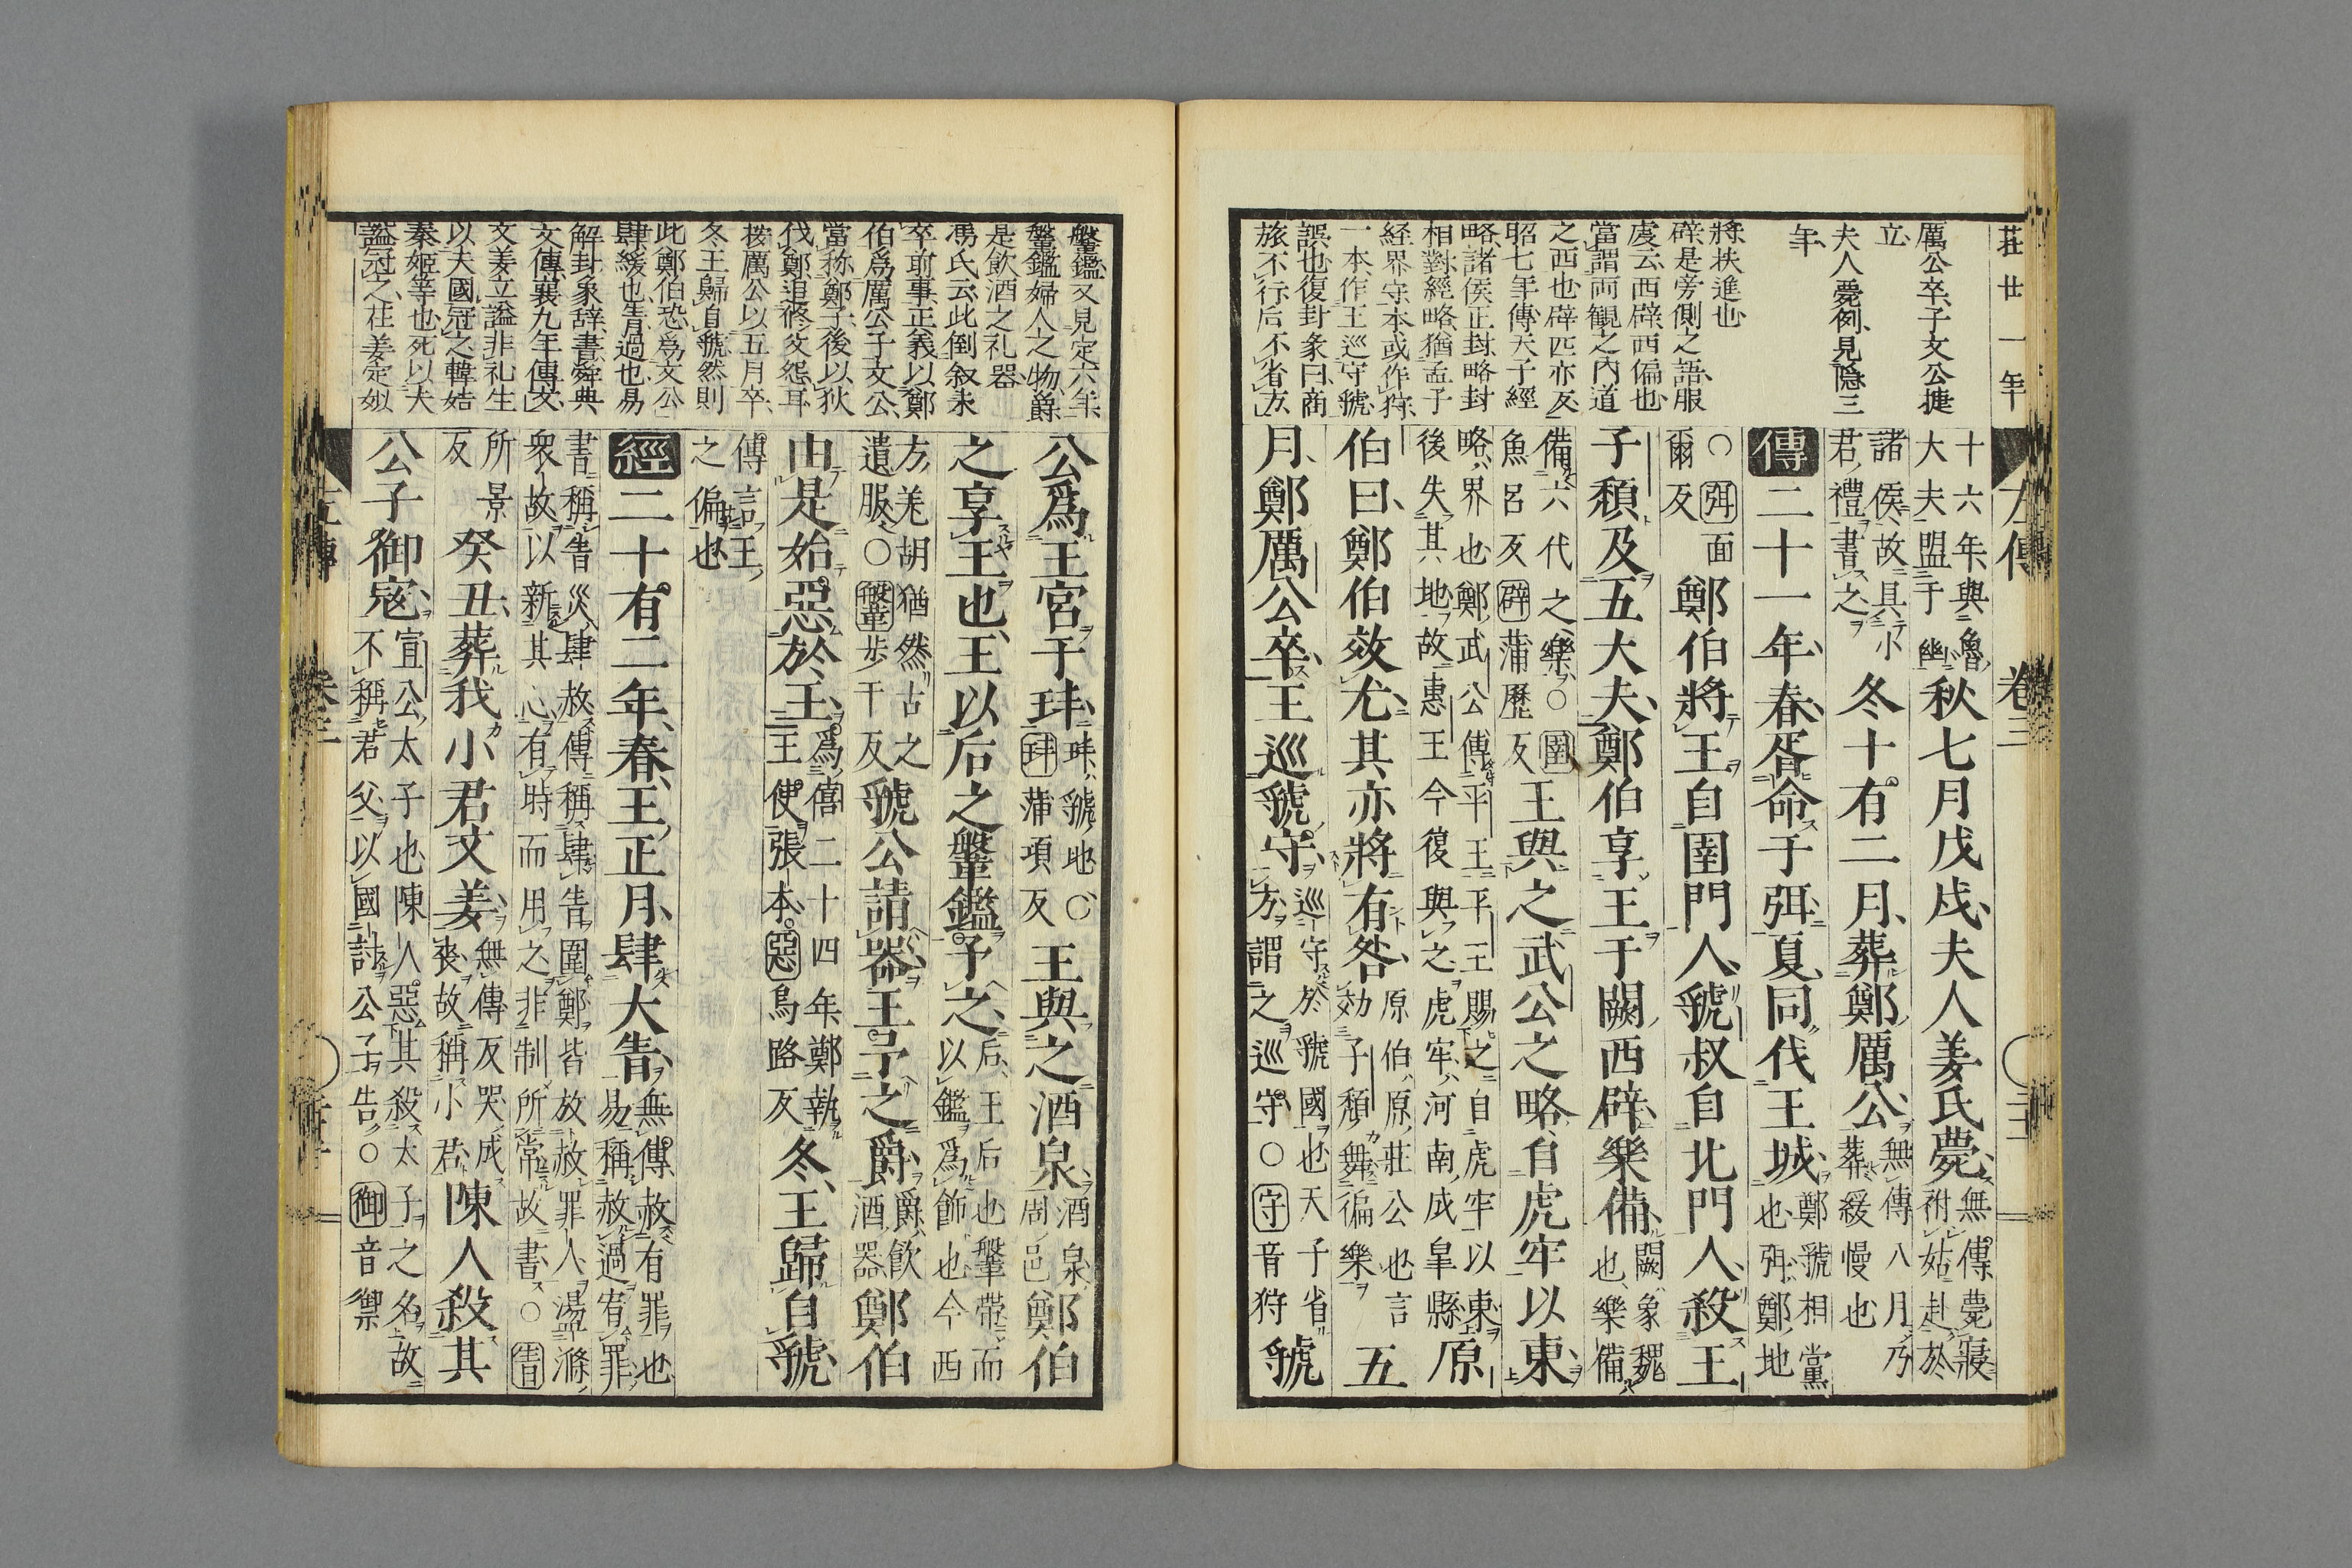 莊廿一年
左傳 卷三
厲公卒子文公捷
立
夫人薨例見隱三
年
將挟進也
辟是旁側之語服
虔云西辟西偏也
當謂両観之内道
之西也辟匹亦反
昭七年傳天子經
略諸侯正封略封
相對經略猶孟子
経界守本或作狩
一本作王巡守虢
誤也復封象曰商
旅不行后不省方
十六年與魯大夫盟于幽秋七月戊戌夫人姜氏薨無傳薨寢祔姑赴於
諸侯故具小君禮書之冬十有二月葬鄭厲公無傳八月乃葬緩慢也
傳二十一年春胥命于弭夏同伐王城鄭虢相黨也弭鄭地
○弭面爾反鄭伯將王自圉門入虢叔自北門入殺王
子頽及五大夫鄭伯享王于闕西辟樂備闕象魏也樂備
備六代之樂○圉魚呂反辟蒲歷反王與之武公之略自虎牢以東
略界也鄭武公傅平王平王賜之自虎牢以東後失其地故惠王今復與之虎牢河南成皐縣原
伯曰鄭伯效尤其亦將有咎原伯原莊公也言効子頽舞徧樂五
月鄭厲公卒王巡虢守巡守於虢國也天子省方謂之巡守○守音狩虢
鞶鑑又見定六年
鞶鑑婦人之物爵
是飲酒之礼器
馮氏云此倒叙未
卒前事正義以鄭
伯爲厲公子文公
當称鄭子後以狄
伐鄭追修父怨耳
按厲公以五月卒
冬王歸自虢然則
此鄭伯恐爲文公
肆緩也眚過也易
解卦象辞書舜典
文傳襄九年傳文
文姜立謚非礼生
以夫國冠之韓姞
秦姬等也死以夫
謚冠之荘姜定姒
公爲王宮于玤玤虢地○玤蒲項反王與之酒泉酒泉周邑鄭伯
之享王也王以后之鞶鑑予之后王后也鞶帯而以鑑爲飾也今西
方羌胡猶然古之遺服○鞶歩干反虢公請器王予之爵爵飲酒器鄭伯
由是始惡於王爲僖二十四年鄭執王使張本○惡烏路反冬王歸自虢
傳言王之偏也
經二十有二年春王正月肆大眚無傳赦有罪也易稱赦過宥罪
書稱眚災肆赦傳稱肆眚圍鄭皆放赦罪人盪滌衆故以新其心有時而用之非制所常故書○眚
所景反癸丑葬我小君文姜無傳反哭成喪故稱小君陳人殺其
公子御寇宣公太子也陳人惡其殺太子之名故不稱君父以國討公子告○御音禦